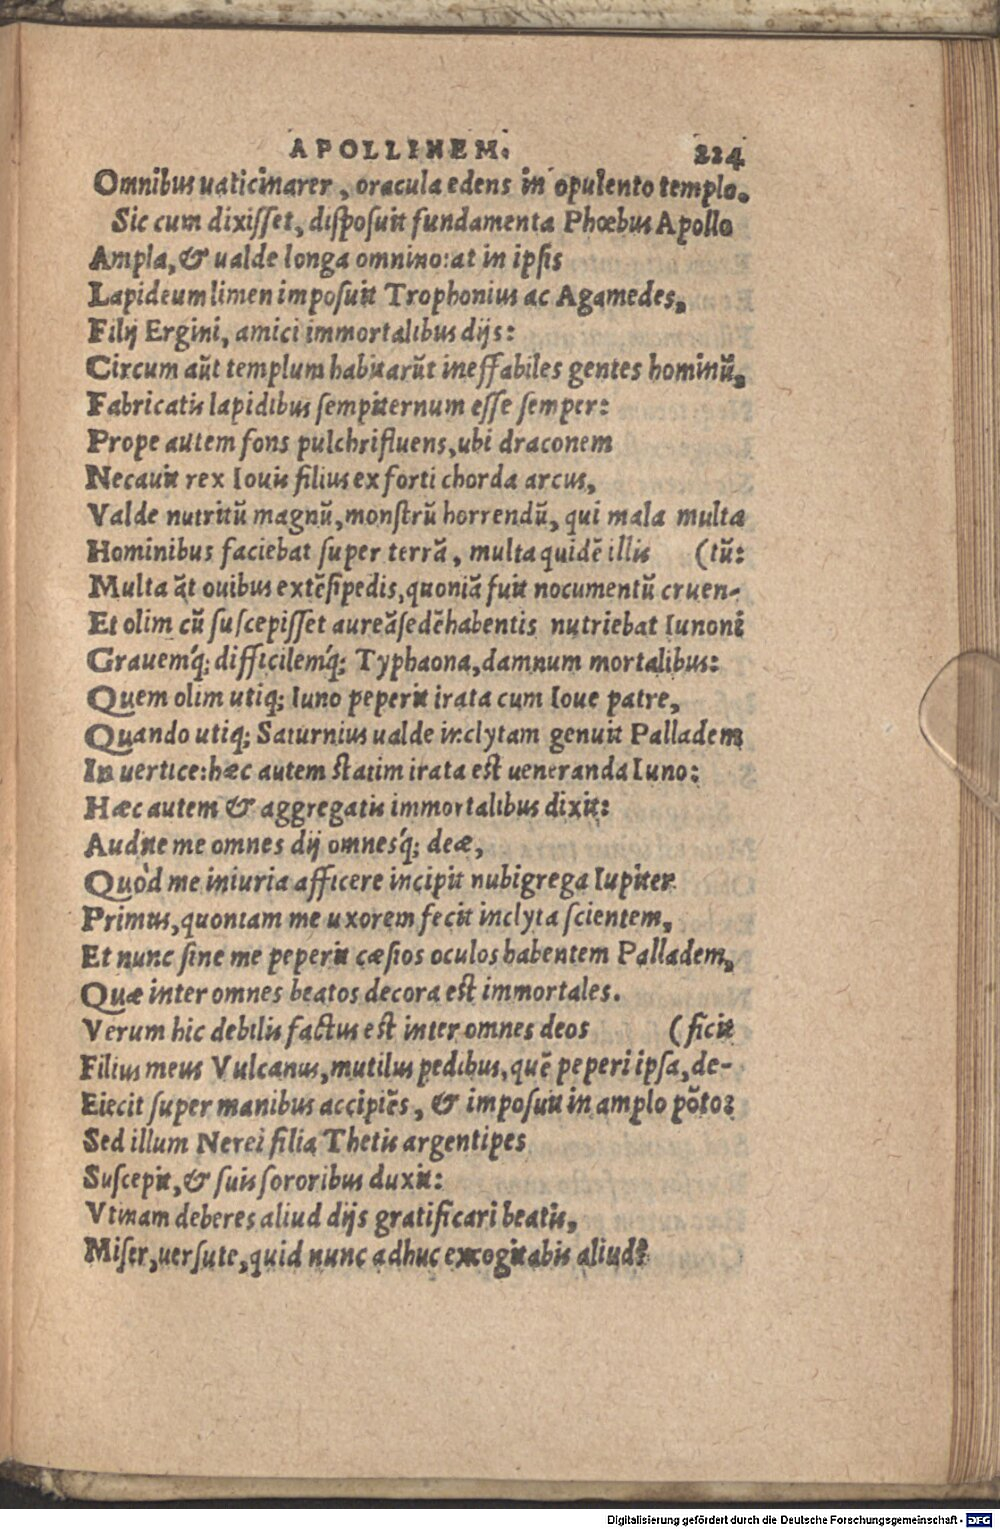 APOLLINEM. 224
Omnibus uaticinarer, oracula edens in opulento templo.
Sic cum dixisset, disposuit fundamenta Phœbus Apollo
Ampla, & ualde longa omnino: at in ipsis
Lapideum limen imposuit Trophonius ac Agamedes,
Filij Ergini, amici immortalibus dijs:
Circum aūt templum habitarūt ineffabiles gentes hominū,
Fabricatis lapidibus sempiternum esse semper:
Prope autem fons pulchrifluens, ubi draconem
Necauit rex Iouis filius ex forti chorda arcus,
Valde nutritū magnū, monstrū horrendū, qui mala multa
Hominibus faciebat super terrā, multa quidē illis (tū:
Multa āt ouibus extēsipedis, quoniā fuit nocumentū cruen-
Et olim cū suscepisset aureāsedēhabentis nutriebat Iunoni
Grauemq́; difficilemq́; Typhaona, damnum mortalibus:
Quem olim utiq; Iuno peperit irata cum Ioue patre,
Quando utiq; Saturnius ualde inclytam genuit Palladem
In uertice: hæc autem statim irata est ueneranda Iuno:
Hæc autem & aggregatis immortalibus dixit:
Audite me omnes dij omnesq́; deæ,
Quòd me iniuria afficere incipit nubigrega Iupiter
Primus, quoniam me uxorem fecit inclyta scientem,
Et nunc sine me peperit cæsios oculos habentem Palladem,
Quæ inter omnes beatos decora est immortales.
Verum hic debilis factus est inter omnes deos (ficit
Filius meus Vulcanus, mutilus pedibus, quē peperi ipsa, de-
Eiecit super manibus accipiēs, & imposuit in amplo pōto:
Sed illum Nerei filia Thetis argentipes
Suscepit, & suis sororibus duxit:
Vtinam deberes aliud dijs gratificari beatis,
Miser, uersute, quid nunc adhuc excogitabis aliud?
Digitalisierung gefördert durch die Deutsche Forschungsgemeinschaft - DFG